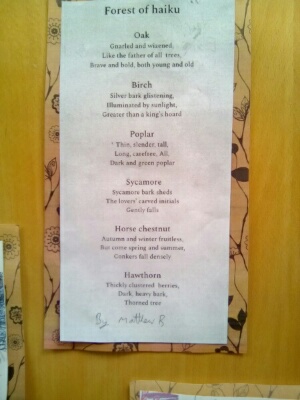 Forest of haiku
Oak
Gnarled and wizened,
Like the father of all trees,
Brave and bold, both young and old
Birch
Silver bark glistening,
Illuminated by sunlight,
Greater than a king's hoard
Poplar
Thin, slender, tall,
Long, carefree, All,
Dark and green poplar
Sycamore
Sycamore bark sheds
The lovers' carved initials
Gently falls
Horse chestnut
Autumn and winter fruitless,
But come spring and summer,
Conkers fall densely
Hawthorn
Thickly clustered berries,
Dark, heavy bark,
Thorned tree
By Matthew R